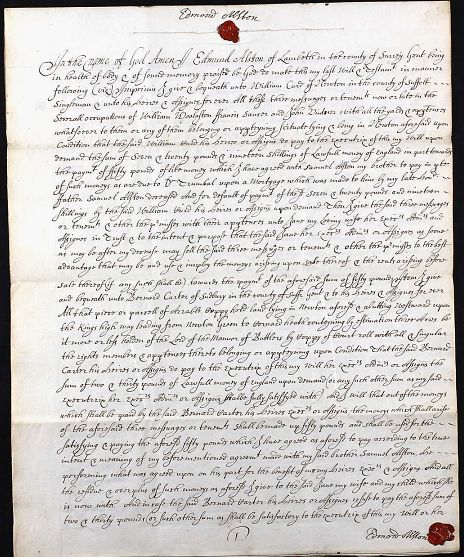 Edmond Alston
In the name of God Amen I Edmund Alston of Lambeth in the county of Surrey Gent being
in health of body & of sound memory praise be God do make this my last Will & Testamt in manner
following (viz) Imprimis I give & bequeath unto William Cade of Newton in the county of Suffolk
Singleman & unto his heires & assignes for ever All those three messuages or tenemts now or late in the
severall occupations of William Woolaston Francis and John with all the yards &
whatsoever to them or any of them belonging or apperteyning scituate lying & being in Newton aforesaid upon
Condition that the said William Cade his heires or assignes do pay to the executrix of this my Will upon
demand the sum of Seven & twenty pounds & nineteen shillings of Lawfull money of England in part towards
the paymt of fifty pounds of like money which I have agreed with Samuel Alston my brother to pay in
of such moneys as are due to Dr Trumbal upon a Mortgage which was made to him by my late
ffather Samuel Alston deceased And for default of paymt of the sd Seven & twenty pounds and nineteen
shillings by the said William Cade his heires or assignes upon demand Then I give the said three messuages
or tenemts & other the p'misses with their unto Jane my loving wife her Exors Admrs and
assignes in Trust & to the intent & purpose that the said Jane her Exors Admrs or assignes as soone
as may be after my decease may sell the said three messuages or tenemts & other the p'misses to the best
advantage that may be and use & imploy the moneys arising upon sale thereof & the rents arising before
sale thereof (if any such shall be) towards the payment of the aforesaid sum of fifty pounds Item I give
and bequeath unto Bernard Carter of Sudbury in the county of Suff. Gent & to his heires & assignes for ever
All that piece or parcel of arable Coppy hold land lying in Newton aforesd & abutting upon
the Kings high way leading from Newton Green to heath conteyning by estimation three acres be
it more or less holden of the Lord of the Mannor of Butlers by coppy of Court roll with all & singular
the rights members & thereto belonging or apperteyning upon Condition That the said Bernard
Carter his heires or assignes do pay to the Executrix of this my Will her Exors Admrs or assignes the
sum of two & thirty pounds of Lawfull money of England upon demand or any such other sum as my said
executrix her Exors Admrs or assignes shalbe fully satisfied with And I will that out of the moneys
which shall be paid by the said Bernard Carter his heires Exors or assignes the moneys which shall arise
of the aforesaid three messuages or tenemts shall be made up fifty pounds and shall be used for the
satisfying & paying the aforesd fifty pounds which I have agreed as aforesd to pay according to the true
intent & meaning of my beforementioned agreemt made with my said brother Samuel Alston, he
performing what was agreed upon on his part for the benefit of me my heires Exors & assignes And all
the residue & overplus of such moneys as aforesd I give to the said Jane my wife and my child which she
is now with And in case the said Bernard Carter his heires or assignes refuse to pay the aforesd sum of
two & thirty pounds (or such other sum as shall be satisfactory to the executrix of this my Will or her
1
Edmond Alston